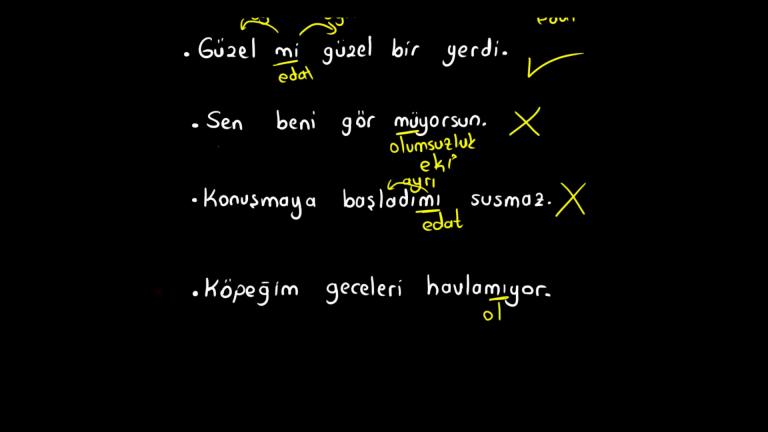 • Güzel mi güzel bir yerdi.
edat
• Sen beni gör müyorsun.
olumsuzluk
eki
ayrı
• Konuşmaya başladımı susmaz.
edat
• Köpeğim geceleri havlamıyor.
ol